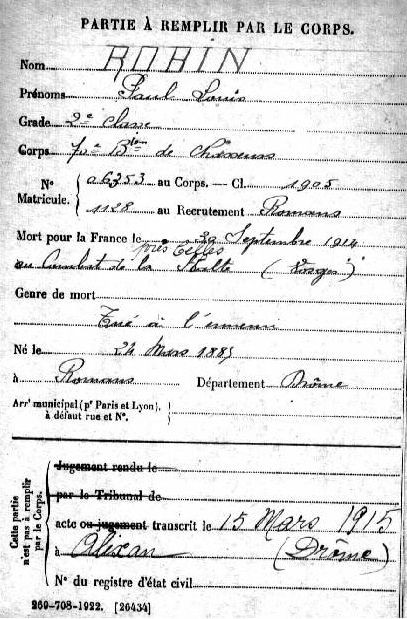 PARTIE À REMPLIR PAR LE CORPS.
Nom ROBIN
Prénoms Paul Louis
Grade 2e classe
Corps 70e Bton de Chasseurs
N° Matricule. { 06353 au Corps. — Cl. 1905
1128 au Recrutement Romans
Mort pour la France le 20 Septembre 1914
près Celles
au Combat de la (Vosges)
Genre de mort
Tué à l'ennemi
Né le 24 Mars 1885
à Romans Département Drôme
Arrt municipal (pr Paris et Lyon),
à défaut rue et N°.
Cette partie n'est pas à remplir par le Corps.
Jugement rendu le
par le Tribunal de
acte ou jugement transcrit le 15 Mars 1915
à Alixan (Drôme)
N° du registre d'état civil
269-708-1922. [26434]